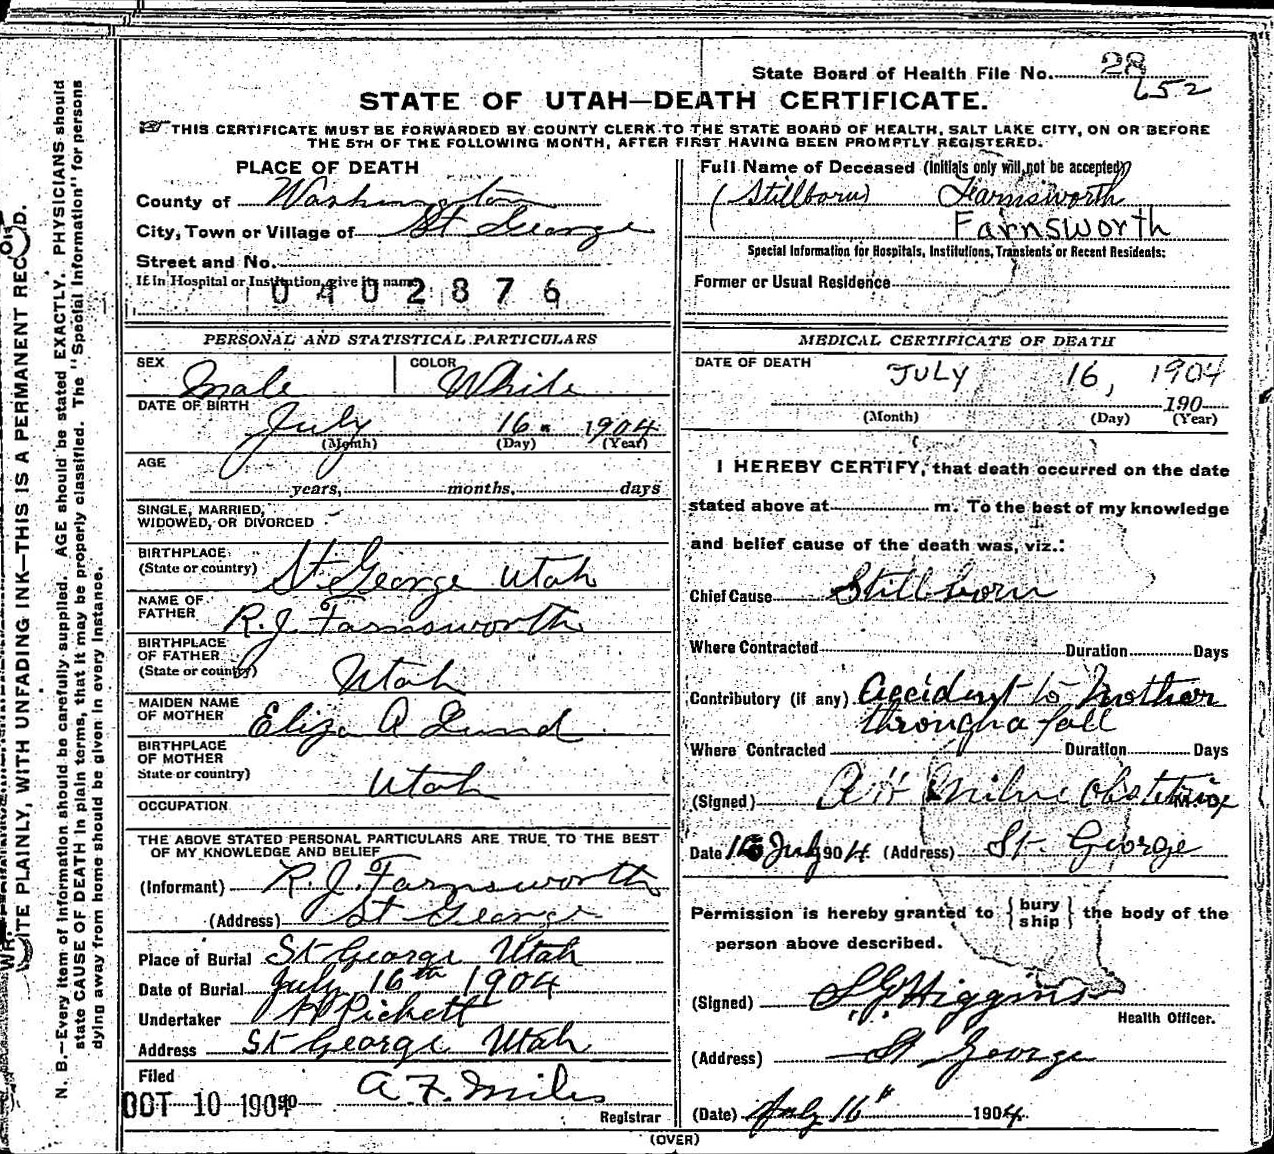 State Board of Health File No. 28
652
STATE OF UTAH—DEATH CERTIFICATE.
THIS CERTIFICATE MUST BE FORWARDED BY COUNTY CLERK TO THE STATE BOARD OF HEALTH, SALT LAKE CITY, ON OR BEFORE
THE 5TH OF THE FOLLOWING MONTH, AFTER FIRST HAVING BEEN PROMPTLY REGISTERED.
PLACE OF DEATH
County of Washington
City, Town or Village of St George
Street and No.
If in Hospital or Institution, give its name
0402876
Full Name of Deceased (Initials only will not be accepted)
(Stillborn) Farnsworth
Farnsworth
Special Information for Hospitals, Institutions, Transients or Recent Residents:
Former or Usual Residence
PERSONAL AND STATISTICAL PARTICULARS
SEX Male COLOR White
DATE OF BIRTH
July 16 1904
(Month) (Day) (Year)
AGE
years, months, days
SINGLE, MARRIED,
WIDOWED, OR DIVORCED
BIRTHPLACE
(State or country) St. George Utah
NAME OF
FATHER R. J. Farnsworth
BIRTHPLACE
OF FATHER
(State or country) Utah
MAIDEN NAME
OF MOTHER Eliza A Lund
BIRTHPLACE
OF MOTHER
State or country) Utah
OCCUPATION
THE ABOVE STATED PERSONAL PARTICULARS ARE TRUE TO THE BEST
OF MY KNOWLEDGE AND BELIEF
(Informant) R. J. Farnsworth
(Address) St George
Place of Burial St George Utah
Date of Burial July 16th 1904
Undertaker Pickett
Address St George Utah
Filed
OCT 10 1904 A. F. Miles
Registrar
MEDICAL CERTIFICATE OF DEATH
DATE OF DEATH JULY 16, 1904
190
(Month) (Day) (Year)
I HEREBY CERTIFY, that death occurred on the date
stated above at m. To the best of my knowledge
and belief cause of the death was, viz.:
Chief Cause Stillborn
Where Contracted Duration Days
Contributory (if any) Accident to Mother
through a fall
Where Contracted Duration Days
(Signed) Milne Obstetrix
Date 16 July 1904 (Address) St. George
Permission is hereby granted to { bury
ship } the body of the
person above described.
(Signed) Higgins
Health Officer.
(Address) St George
(Date) July 16" 1904.
(OVER)
WRITE PLAINLY, WITH UNFADING INK—THIS IS A PERMANENT RECORD.
N. B.—Every item of information should be carefully supplied. AGE should be stated EXACTLY. PHYSICIANS should
state CAUSE OF DEATH in plain terms, that it may be properly classified. The "Special Information" for persons
dying away from home should be given in every instance.